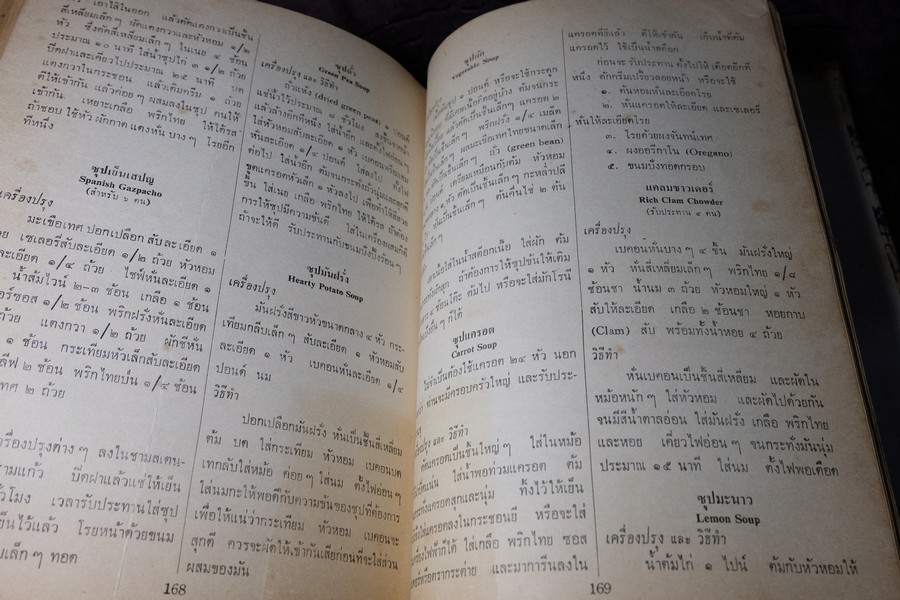 เอาใส่ในออก แล้วคัดแตงกวาเป็นชิ้น
สี่เหลี่ยมเล็กๆ ผัดแตงกวาและหัวหอม ๑/๒
หัว ซึ่งคัดสี่เหลี่ยมเล็กๆ ในเนย ๔ ช้อน
ประมาณ ๑๐ นาที ใส่น้ำซุปไก่ ๓ ๑/๒ ถ้วย
ปิดฝาและเคี่ยวไปประมาณ ๒๕ นาที บด
แตงกวาในกระชอน แล้วเติมครีม ๑ ถ้วย
ตีให้เข้ากัน แล้วค่อยๆ ผสมลงในซุป คนให้
เข้ากัน เหยาะเกลือ พริกไทย ให้ได้รส
ถ้าชอบ ใช้หัว ผักกาด แดงหั่น บางๆ โรยอีก
ทีหนึ่ง
ซุปเย็นสเปญ
Spanish Gazpacho
(สำหรับ ๖ คน)
เครื่องปรุง
มะเขือเทศ ปอกเปลือก สับละเอียด ๑
เซเลอรี่สับละเอียด ๑/๒ ถ้วย หัวหอม
ละเอียด ๑/๔ ถ้วย ไชฟ์หั่นละเอียด ๑
น้ำส้มไวน์ ๒-๓ ช้อน เกลือ ๑ ช้อน
๑/๒ ช้อน พริกฝรั่งหั่นละเอียด
แตงกวา ๑/๒ ถ้วย ผักชีหั่น
๑ ช้อน กระเทียมหัวเล็กสับละเอียด
๒ ช้อน พริกไทยป่น ๑/๔ ช้อน
๒ ถ้วย
เครื่องปรุงต่างๆ ลงในชามสเตน-
ปิดฝาแล้วแช่ให้เย็น
ชั่วโมง เวลารับประทานใส่ซุป
เย็นไว้แล้ว โรยหน้าด้วยขนม
เล็กๆ ทอด
168
ซุปถั่ว
Green Pea Soup
เครื่องปรุง และ วิธีทำ
ถั่วแห้ง (dried green peas) ๑ ปอนด์
แช่น้ำไว้ประมาณ ๘ ชั่วโมง
แล้วล้างอีกทีหนึ่ง
ใส่หัวหอมสับละเอียด ๑ หัว เบคอน
หั่นละเอียด ๑/๔ ปอนด์
ต่อไป ใส่น้ำอีก ต้มจนกระทั่งถั่วนุ่ม
ขูดแครอตหัวเล็ก ๑ หัวลงไป เพื่อทำให้สีสวย
ขึ้น ใส่เนย เกลือ พริกไทย ให้ได้รส ถ้าต้อง
การให้ซุปมีความข้นดี
ถ้าจะให้ดี รับประทานกับขนมปังปิ้งร้อนๆ
ซุปมันฝรั่ง
Hearty Potato Soup
เครื่องปรุง
มันฝรั่งสีขาวหัวขนาดกลาง ๔ หัว กระ-
เทียมกลีบเล็กๆ สับละเอียด ๑ หัวหอมสับ
ละเอียด ๑ หัว เบคอนหั่นละเอียด ๑/๔
ปอนด์ นม
วิธีทำ
ปอกเปลือกมันฝรั่ง หั่นเป็นชิ้นสี่เหลี่ยม
ต้ม บด ใส่กระเทียม หัวหอม เบคอนบด
เทกลับใส่หม้อ ค่อยๆ ใส่นม ตั้งไฟอ่อนๆ
ใส่นมกะให้พอดีกับความข้นของซุปที่ต้องการ
เพื่อให้แน่ว่ากระเทียม หัวหอม เบคอนจะ
สุกดี ควรจะผัดให้เข้ากันเสียก่อนที่จะใส่ส่วน
ผสมของมัน
ซุปผัก
Vegetable Soup
ซุป ๑ ปอนด์ หรือจะใช้กระดูก
เนื้อติดอยู่บ้าง ต้มจนกระ
เป็นชิ้นเล็กๆ แครอต ๒
เล็กๆ พริกฝรั่ง ๑/๒ เม็ด
ผสมมะเขือเทศไทยขนาดเล็ก
ถั่ว (green bean)
เตรียมเหมือนกับต้ม หัวหอม
ตัดเป็นชิ้นเล็กๆ กะหล่ำปลี
เป็นชิ้นเล็กๆ ต้นคื่นไช่ ๒ ต้น
เล็กๆ
เนื้อใส่ในน้ำสต๊อกเนื้อ ใส่ผัก ต้ม
ผักสุก ถ้าต้องการให้ซุปข้นให้เติม
๔ ช้อนโต๊ะ ต้มไป หรือจะใส่มักโรนี
อื่นๆ ก็ได้
ซุปแครอต
Carrot Soup
จำเป็นต้องใช้แครอต ๒๔ หัว นอก
ท่านจะมีครอบครัวใหญ่ และรับประ-
เครื่องปรุง และ วิธีทำ
แครอตเป็นชิ้นใหญ่ๆ ใส่ในหม้อ
ใส่น้ำพอท่วมแครอต ต้ม
กระทั่งแครอตสุกและนุ่ม ทิ้งไว้ให้เย็น
ใส่แครอตลงในกระชอนยี หรือจะใส่
เครื่องไฟฟ้าก็ได้ ใส่เกลือ พริกไทย ซอส
หรือตรากระต่าย และมาการีนลงใน
แครอตที่ยีแล้ว ตีให้เข้ากัน เก็บน้ำที่ต้ม
แครอตไว้ ใช้เป็นน้ำสต๊อก
ก่อนจะ รับประทาน ตั้งไปให้ เดือดอีกที
หนึ่ง ตักครีมเปรี้ยวลอยหน้า หรือจะใช้
๑. ต้นหอมหั่นละเอียดโรย
๒. หั่นแครอตให้ละเอียด และเซเลอรี่
หั่นให้ละเอียดโรย
๓. โรยด้วยผงจันทน์เทศ
๔. ผงออริกาโน (Oregano)
๕. ขนมปังทอดกรอบ
แคลมชาวเดอร์
Rich Clam Chowder
(รับประทาน ๔ คน)
เครื่องปรุง
เบคอนหั่นบางๆ ๔ ชิ้น มันฝรั่งใหญ่
๑ หัว หั่นสี่เหลี่ยมเล็กๆ พริกไทย ๑/๘
ช้อนชา น้ำนม ๓ ถ้วย หัวหอมใหญ่ ๑ หัว
สับให้ละเอียด เกลือ ๒ ช้อนชา หอยกาบ
(Clam) สับ พร้อมทั้งน้ำหอย ๔ ถ้วย
วิธีทำ
หั่นเบคอนเป็นชิ้นสี่เหลี่ยม และผัดใน
หม้อหนักๆ ใส่หัวหอม และผัดไปด้วยกัน
จนมีสีน้ำตาลอ่อน ใส่มันฝรั่ง เกลือ พริกไทย
และหอย เคี่ยวไฟอ่อนๆ จนกระทั่งมันนุ่ม
ประมาณ ๑๕ นาที ใส่นม ตั้งไฟพอเดือด
ซุปมะนาว
Lemon Soup
เครื่องปรุง และ วิธีทำ
น้ำต้มไก่ ๑ ไปน์ ต้มกับหัวหอมให้
169